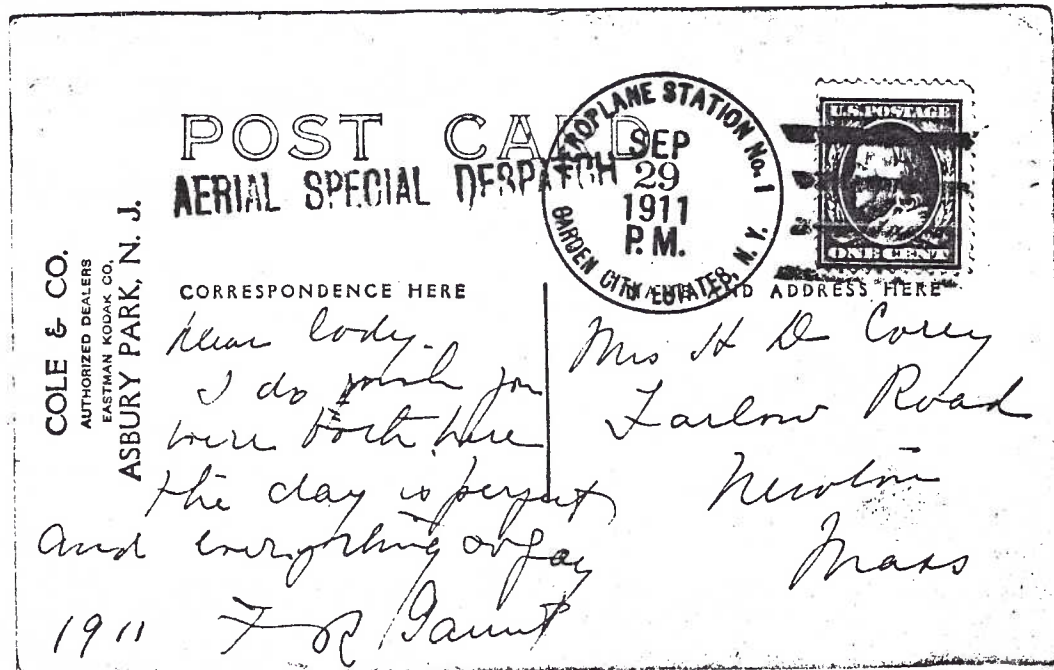 POST CARD
AERIAL SPECIAL DESPATCH
AEROPLANE STATION No. 1
SEP
29
1911
P.M.
GARDEN CITY ESTATES, N. Y.
U.S. POSTAGE
ONE CENT
COLE & CO.
AUTHORIZED DEALERS
EASTMAN KODAK CO,
ASBURY PARK, N. J.
CORRESPONDENCE HERE
Dear Cody.
I do wish you
were both here
the day is perfect
and everything so gay
1911 F R
NAME AND ADDRESS HERE
Mrs H D Corey
Farlow Road
Newton
Mass